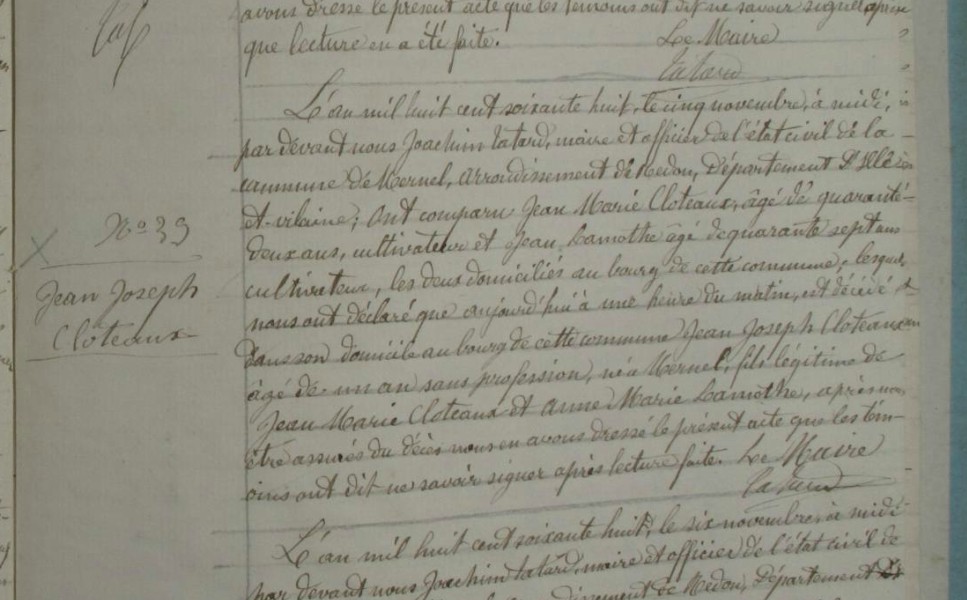 avons dressé le présent acte que les temoins ont dit ne savoir signer, après
que lecture en a été faite. Le Maire
Tatard
L'an mil huit cent soixante huit, le cinq novembre, à midi,
par devant nous Joachim Tatard, maire et officier de l'état civil de la
commune de Mernel, arrondissement de Redon, Département
et-vilaine; Ont comparu Jean Marie Cloteaux, âgé de quarante-
deux ans, cultivateur et Jean Lamothe âgé de quarante sept ans
cultivateur, les deux domiciliés au bourg de cette commune, lesquels
nous ont déclaré que aujourd'hui à une heure du matin, est décédé
dans son domicile au bourg de cette commune Jean Joseph Cloteaux
âgé de un an sans profession, né à Mernel, fils légitime de
Jean Marie Cloteaux et Anne Marie Lamothe, après nous
être assurés du décès nous en avons dressé le présent acte que les tém-
oins ont dit ne savoir signer après lecture faite. Le Maire
Tatard
N° 39
Jean Joseph
Cloteaux
L'an mil huit cent soixante huit, le six novembre, à midi
par devant nous Joachim Tatard, maire et officier de l'état civil de
de Redon, Département